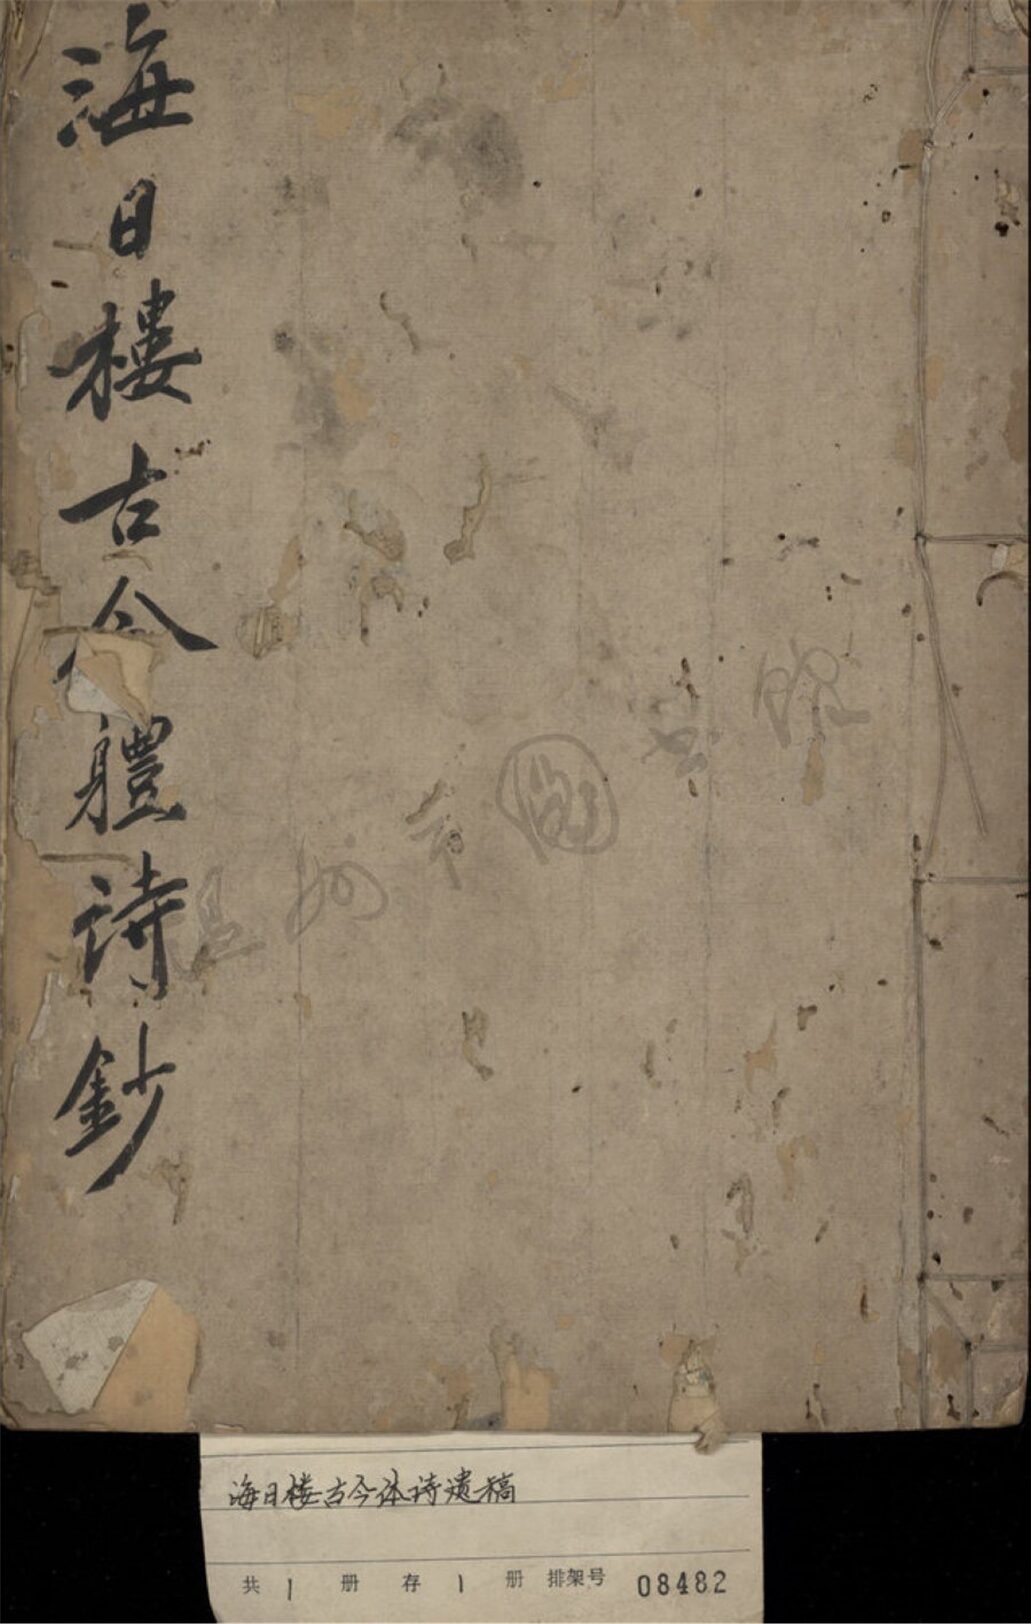 海日樓古今體詩鈔
温州市圖书馆
海日楼古今体诗遗稿
共 1 册 存 1 册 排架号 08482